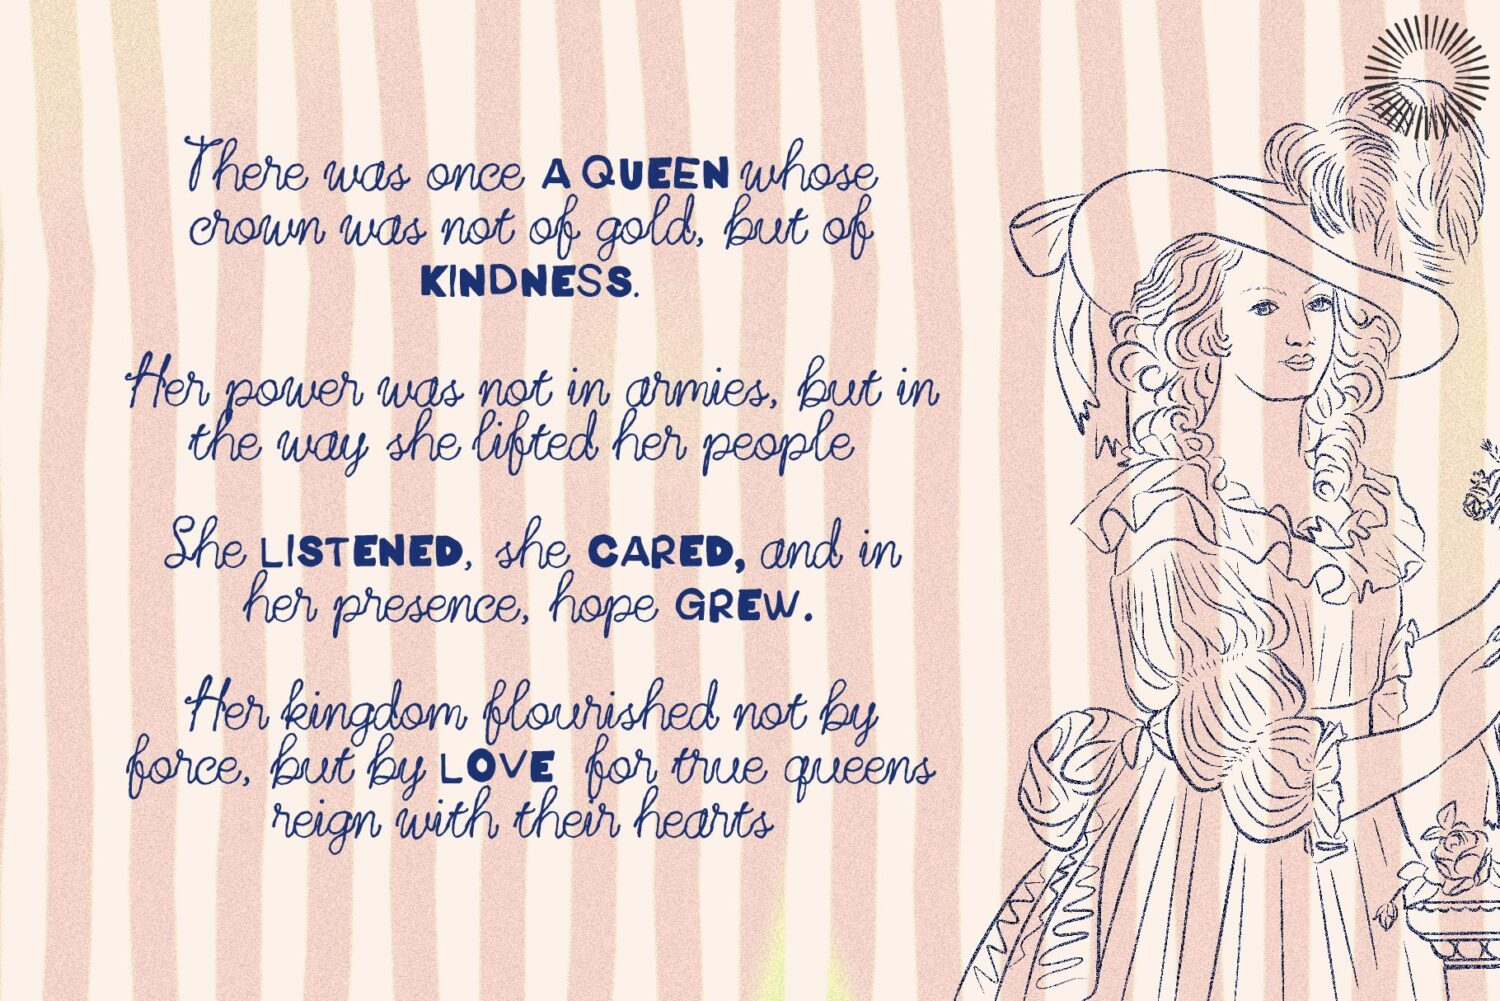 There was once A QUEEN whose
crown was not of gold, but of
KINDNESS.
Her power was not in armies, but in
the way she lifted her people
She LISTENED, she CARED, and in
her presence, hope GREW.
Her kingdom flourished not by
force, but by LOVE for true queens
reign with their hearts